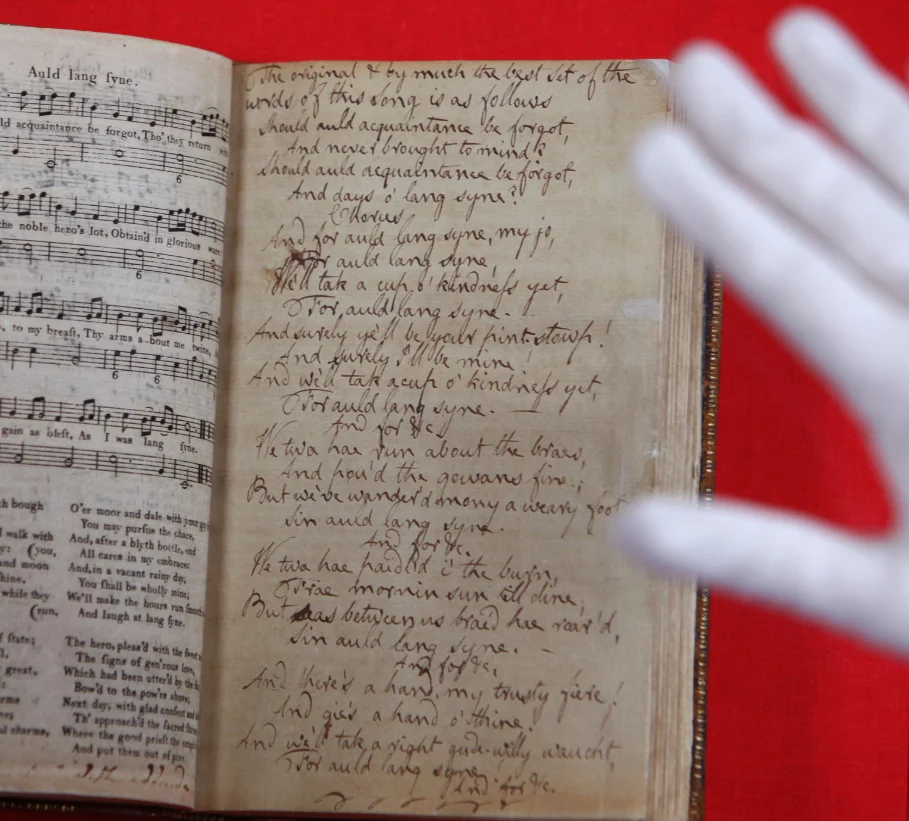 Auld lang ſyne.
ld acquaintance be forgot, Tho' they return
the noble hero's lot, Obtain'd in glorious
6
6
, to my breaſt, Thy arms a-bout me twine,
6 6
gain as bleſt, As I was lang ſyne.
6
h bough
walk with
(you,
and moon
hine,
while they
(run,
f ſtate;
great,
l charms,
O'er moor and dale with your
You may purſue the chace,
And, after a blyth bottle, end
All cares in my embrace:
And, in a vacant rainy day,
You ſhall be wholly mine;
We'll make the hours run ſmooth
And laugh at lang ſyne.
The hero, pleas'd with the ſweet
The ſigns of gen'rous love,
Which had been utter'd by the
Bow'd to the pow'rs above;
Next day, with glad conſent and
Th' approach'd the ſacred
Where the good prieſt the
And put them out of
The original & by much the best set of the
words of this song is as follows
Should auld acquaintance be forgot,
And never brought to mind?
Should auld acquaintance be forgot,
And days o' lang syne?
Chorus
And for auld lang syne, my jo,
For auld lang syne,
We'll take a cup o' kindneſs yet,
For auld lang syne. -
And surely ye'll be your pint-stowp!
And surely I'll be mine!
And we'll take a cup o' kindneſs yet,
For auld lang syne. —
And for &c.
We twa hae run about the braes,
And pou'd the gowans fine;
But we've wander'd mony a weary foot
Sin auld lang syne.
And for &c.
We twa hae paidl'd i' the burn,
Frae mornin sun till dine;
But seas between us braid hae roar'd,
Sin auld lang syne. -
And for &c.
And there's a hand, my trusty fiere!
And gie's a hand o' thine!
And we'll take a right gude-willy waught,
For auld lang syne
And for &c.